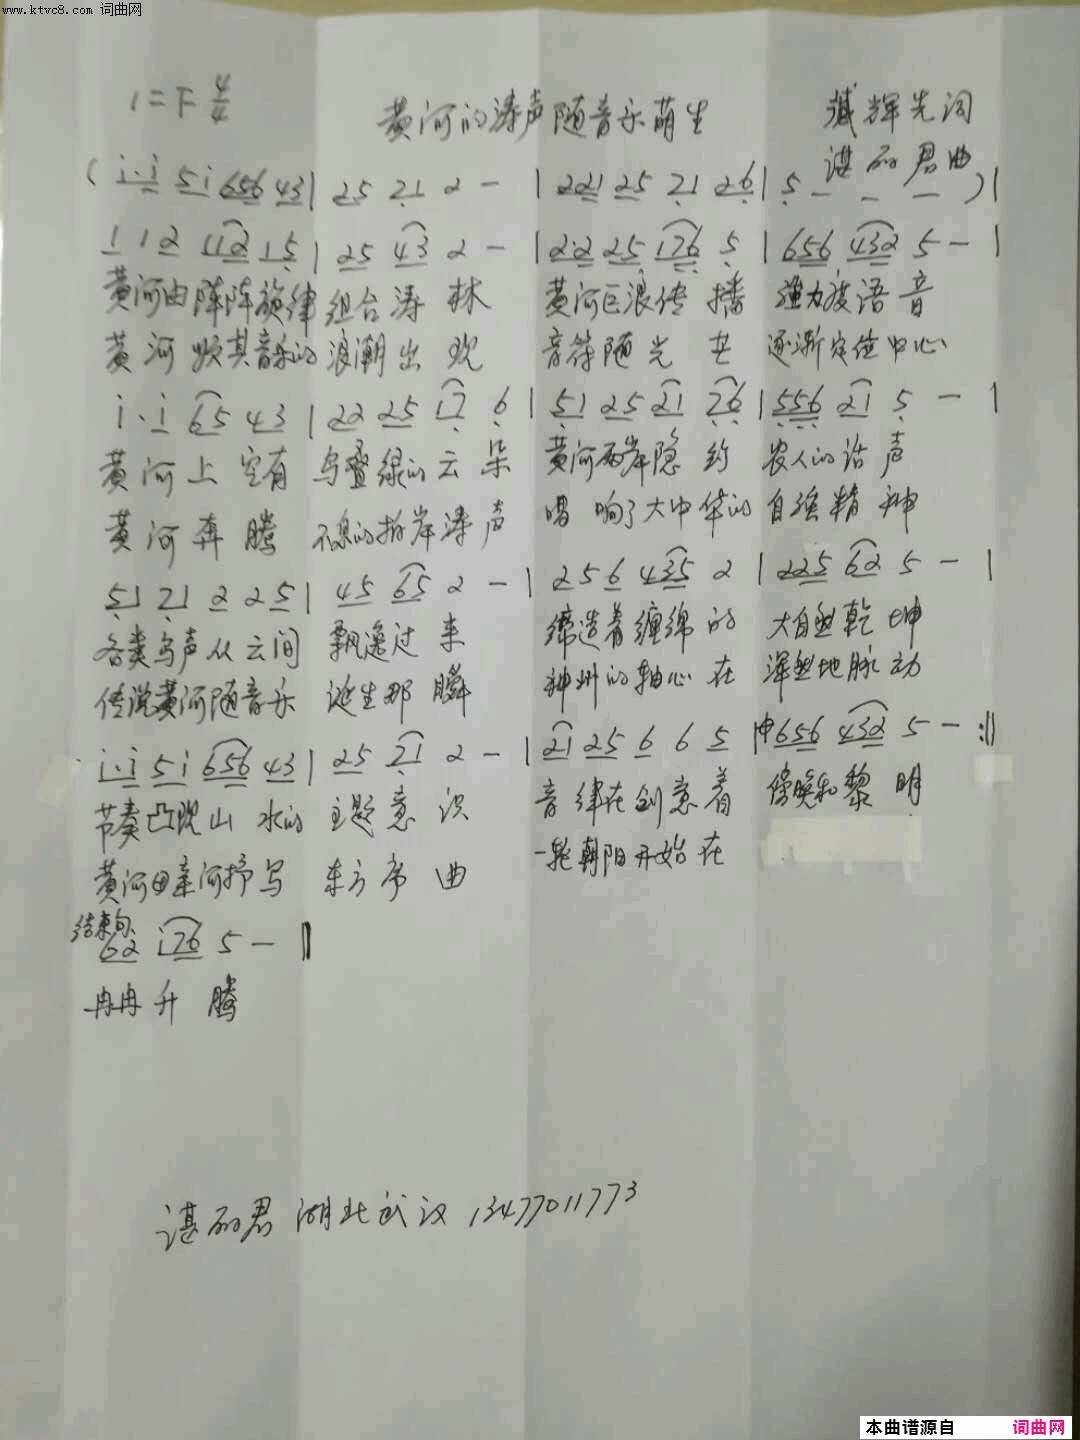 www.ktvc8.com 词曲网
1=F 4/4
黄河的涛声随音乐萌生
臧辉先词
谌丽君曲
( i·i 5i 656 43 | 25 21 2 - | 221 25 21 26 | 5 - - - ) |
1 12 112 15 | 25 43 2 - | 22 25 176 5 | 656 432 5 - |
黄河由阵阵旋律组合涛林 黄河巨浪传播强力度语音
黄河顺其音乐的浪潮出现 音符随光芒逐渐定位中心
i·i 65 43 | 22 25 17 6 | 51 25 21 76 | 556 21 5 - |
黄河上空有乌叠绿的云朵 黄河两岸隐约农人的话声
黄河奔腾不息的拍岸涛声 唱响了大中华的自强精神
51 21 2 25 | 45 65 2 - | 256 435 2 | 225 62 5 - |
各类鸟声从云间飘逸过来 缔造着缠绵的大自然乾坤
传说黄河随音乐诞生那瞬 神州的轴心在浑然地脉动
i·i 5i 656 43 | 25 21 2 - | 21 25 6 6 5 | 656 432 5 - :||
节奏凸现山水的主题意识 音律在创意着傍晚和黎明
黄河母亲河抒写东方序曲 一轮朝阳开始在
结束句
62 i76 5 - ||
冉冉升腾
谌丽君 湖北武汉 13477011773
本曲谱源自 词曲网